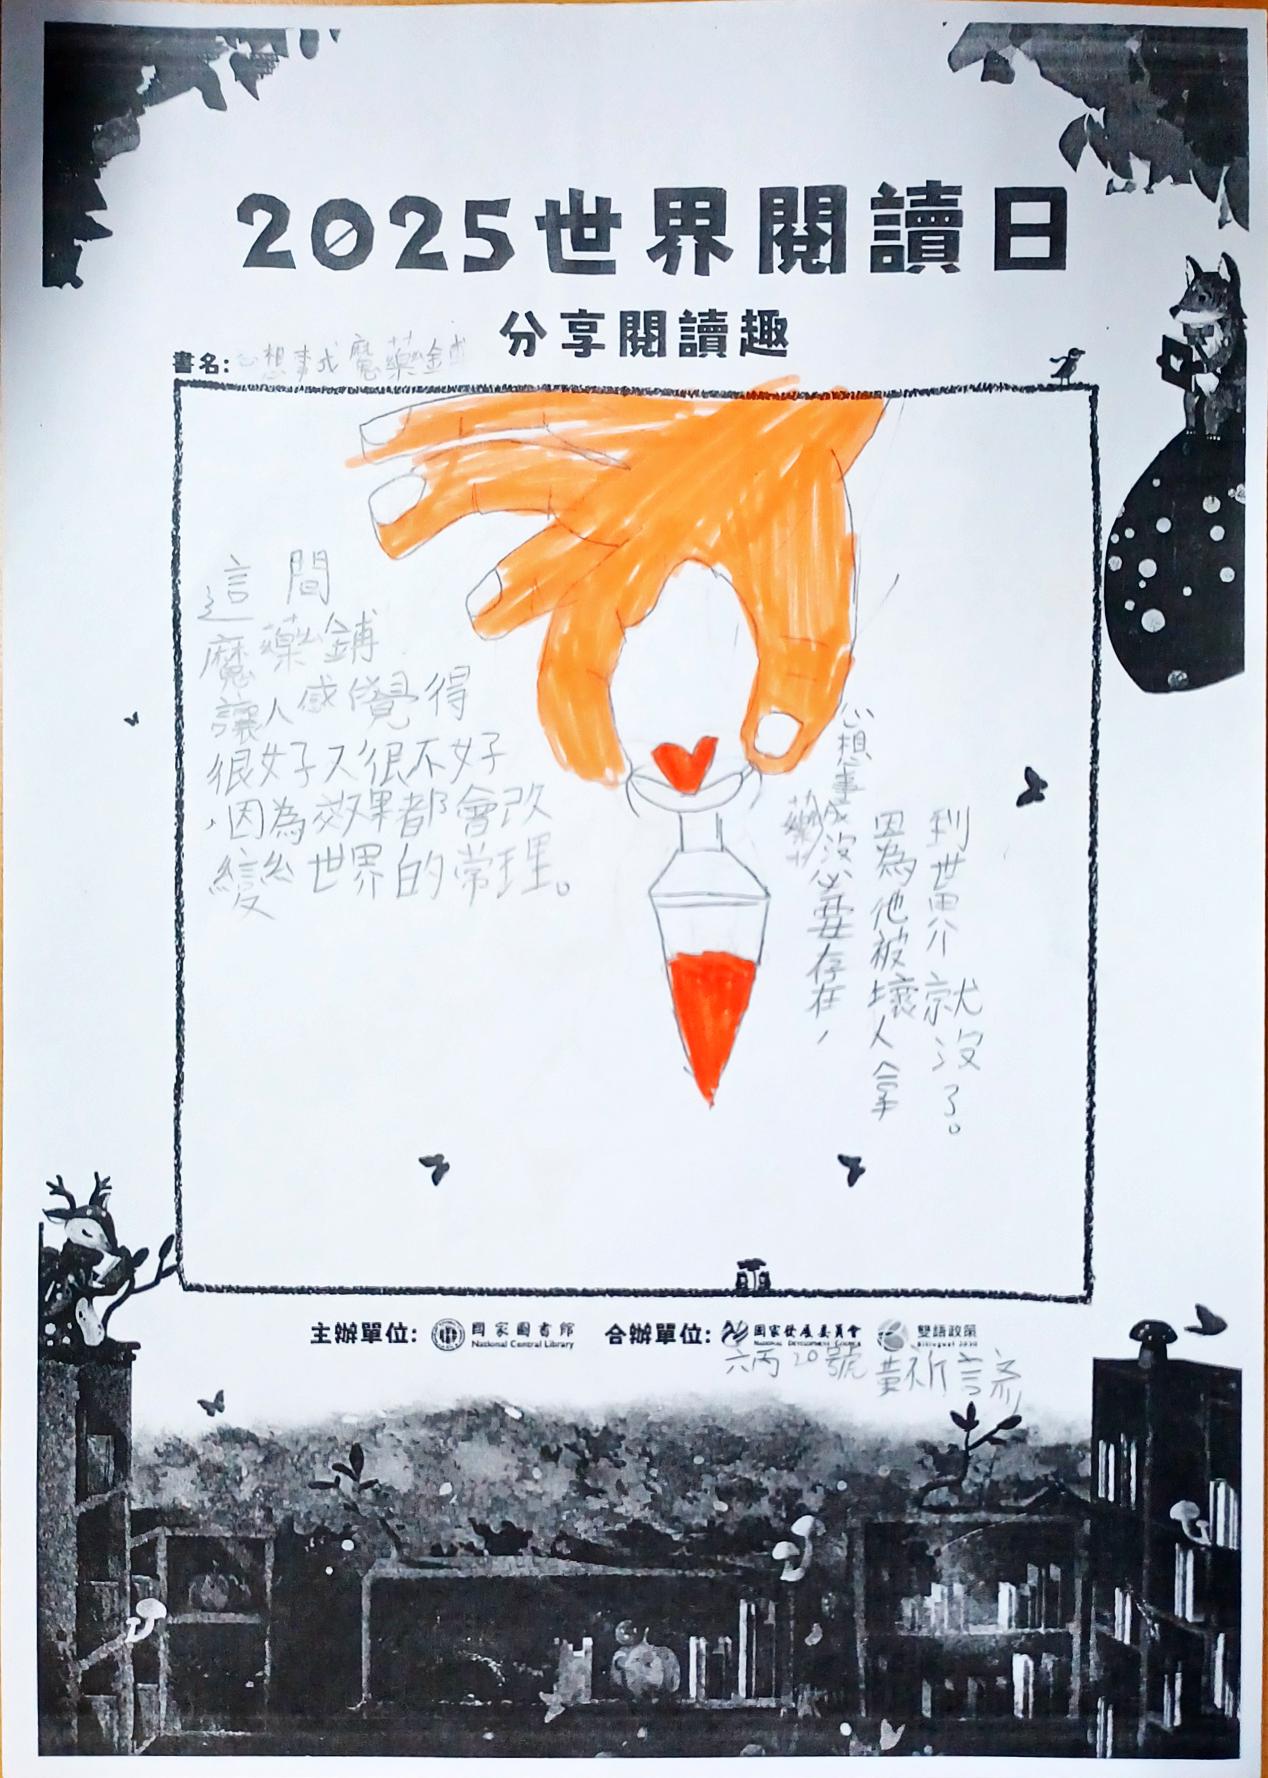 2025世界閱讀日
分享閱讀趣
書名:心想事成魔藥鋪
這間
魔藥鋪
讓人感覺得
很好又很不好
,因為效果都會改
變公世界的常理。
心想事成藥沒必要存在,
因為他被壞人拿
到世界就沒了。
主辦單位: 國家圖書館 National Central Library 合辦單位: 國家發展委員會 NATIONAL DEVELOPMENT COUNCIL 雙語政策 Bilingual 2030
六丙 20號 黃祈諺